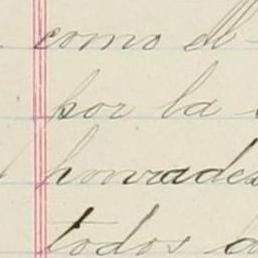 como el
por la
honrades
todos